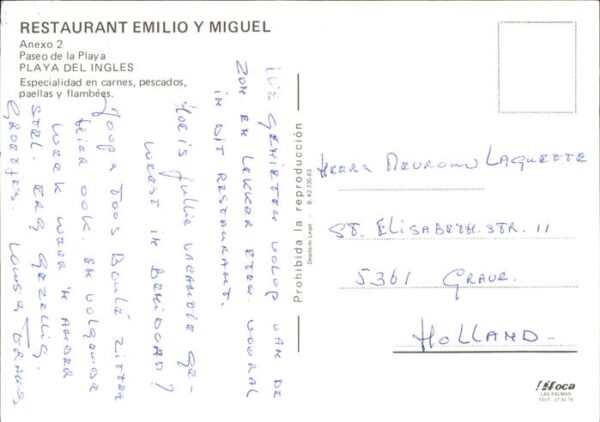 RESTAURANT EMILIO Y MIGUEL
Anexo 2
Paseo de la Playa
PLAYA DEL INGLES
Especialidad en carnes, pescados,
paellas y flambées.
WIJ GENIETEN VOLOP VAN DE
ZON EN LEKKER ETEN VOORAL
IN DIT RESTAURANT.
HOE IS JULLIE VACANTIE GE-
WEEST IN BENIDORM?
JOOP & TOOS ZITTEN
HIER OOK EN VOLGENDE
WEEK WEER 'N ANDER
STEL. ERG GEZELLIG.
GROETJES.
Prohibida la reproducción
Depósito Legal - B. 42.735-83
HERR & MEVROUW LAQUETTE
ST. ELISABETH.STR. 11
5361 GRAVE.
HOLLAND-
foca
LAS PALMAS